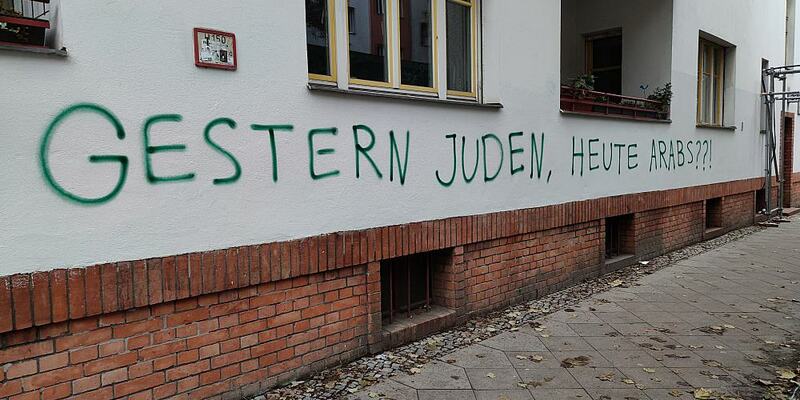 H 150
GESTERN JUDEN, HEUTE ARABS??!